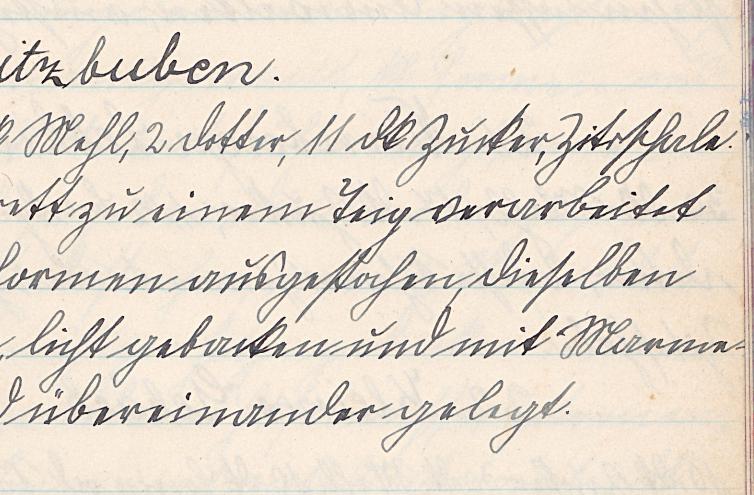 itzbuben.
Mehl, 2 Dotter, 11 dk Zucker, Zitrschale.
rett zu einem Teig verarbeitet
formen ausgestochen, dieselben
licht gebacken und mit Marme-
d übereinander gelegt.